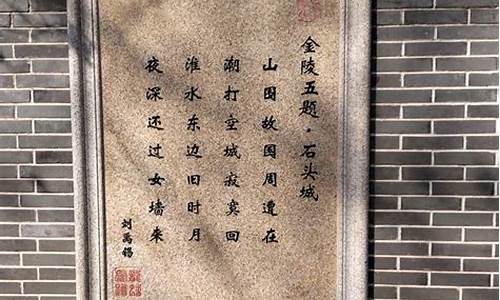 金陵五题·石头城
山围故国周遭在
潮打空城寂寞回
淮水东边旧时月
夜深还过女墙来
刘禹锡